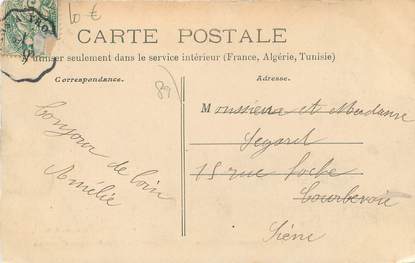 10 €
CARTE POSTALE
utiliser seulement dans le service intérieur (France, Algérie, Tunisie)
Correspondance.
Adresse.
89
Monsieur et Madame
Segard
Bonjour de loin
Amélie
15 rue
Courbevoie
Siène